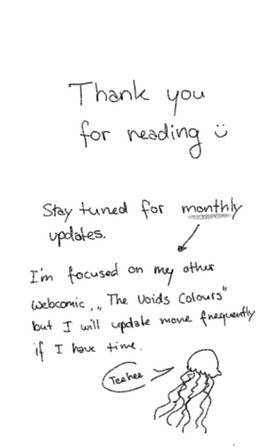 Thank you
for reading :)
Stay tuned for monthly
updates.
I'm focused on my other
webcomic „The Voids Colours"
but I will update more frequently
if I have time.
Teehee